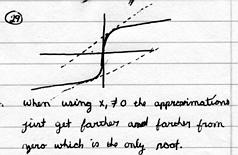 29
when using x, ≠ 0 the approximations
just get farther and farther from
zero which is the only root.